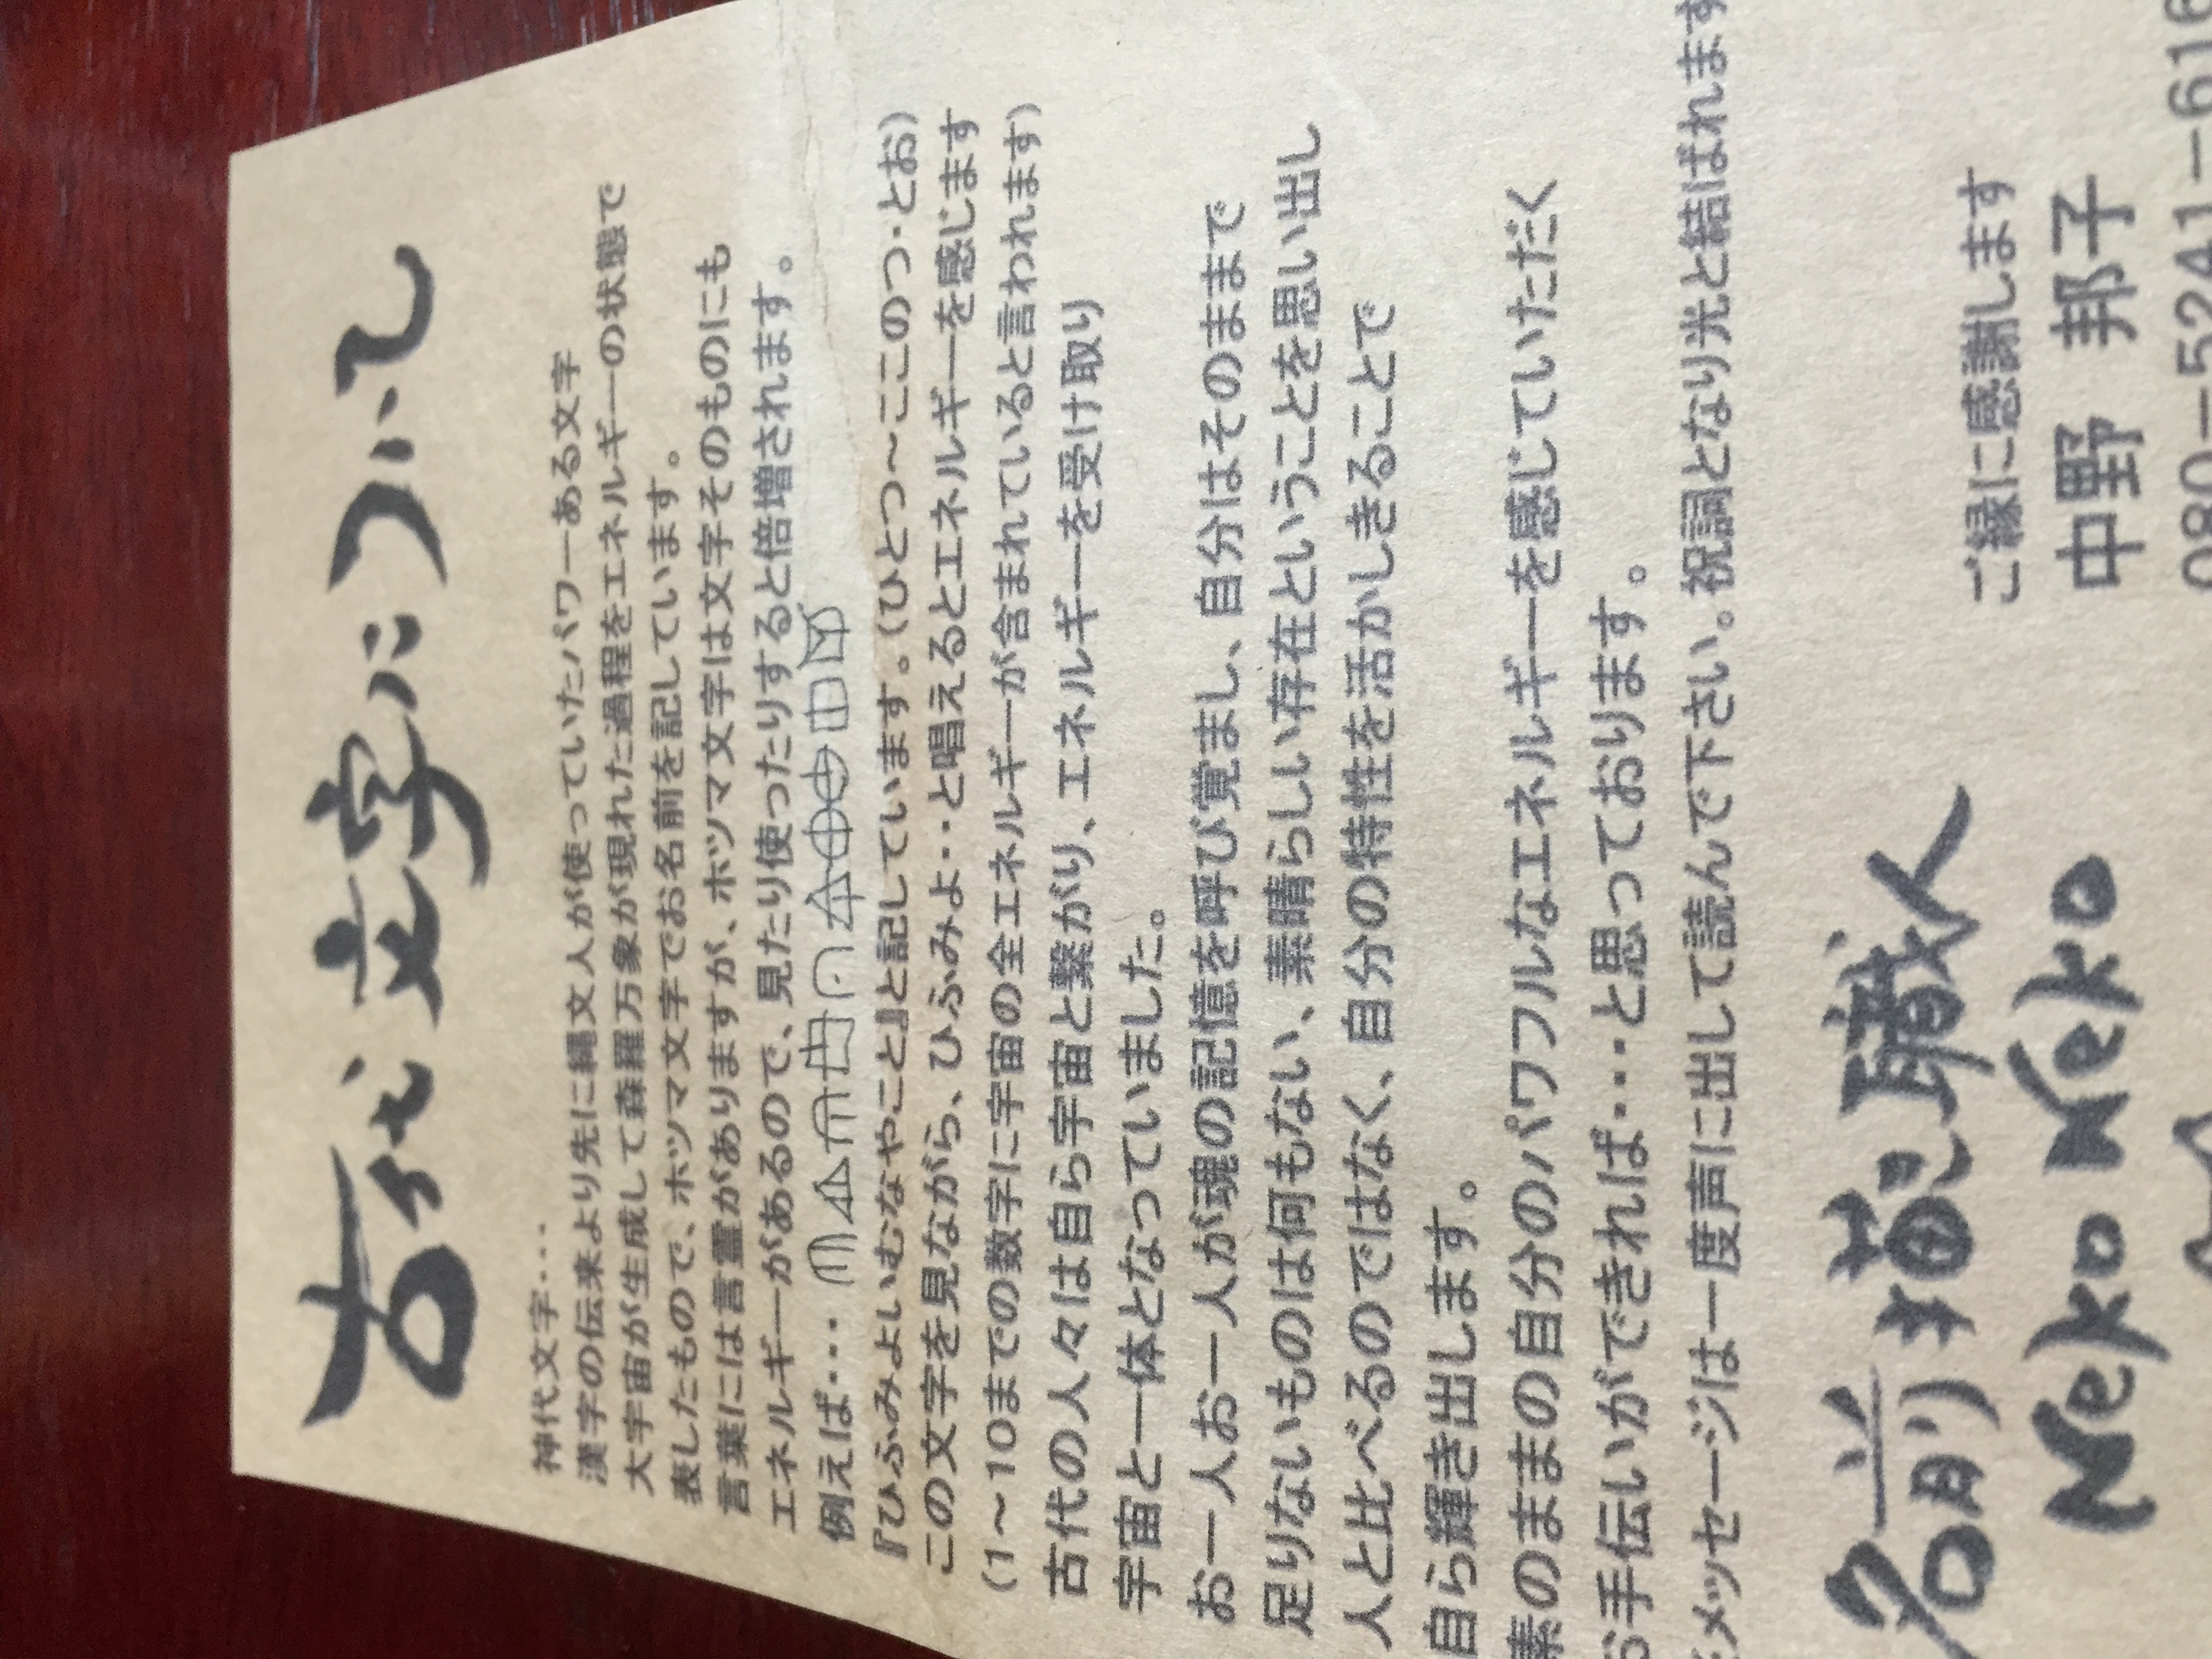 古代文字について
神代文字・・・
漢字の伝来より先に縄文人が使っていたパワーある文字
大宇宙が生成して森羅万象が現れた過程をエネルギーの状態で
表したもので、ホツマ文字でお名前を記しています。
言葉には言霊がありますが、ホツマ文字は文字そのものにも
エネルギーがあるので、見たり使ったりすると倍増されます。
例えば・・・
『ひふみよいむなやこと』と記しています。(ひとつ～ここのつ・とお)
この文字を見ながら、ひふみよ・・と唱えるとエネルギーを感じます
(1～10までの数字に宇宙の全エネルギーが含まれていると言われます)
古代の人々は自ら宇宙と繋がり、エネルギーを受け取り
宇宙と一体となっていました。
お一人お一人が魂の記憶を呼び覚まし、自分はそのままで
足りないものは何もない、素晴らしい存在ということを思い出し
人と比べるのではなく、自分の特性を活かしきることで
自ら輝き出します。
素のままの自分のパワフルなエネルギーを感じていただく
お手伝いができれば・・・と思っております。
※メッセージは一度声に出して読んで下さい。祝詞となり光と結ばれます
ご縁に感謝します
名前猫職人
中野 邦子
Neko Neko
080-5241-616